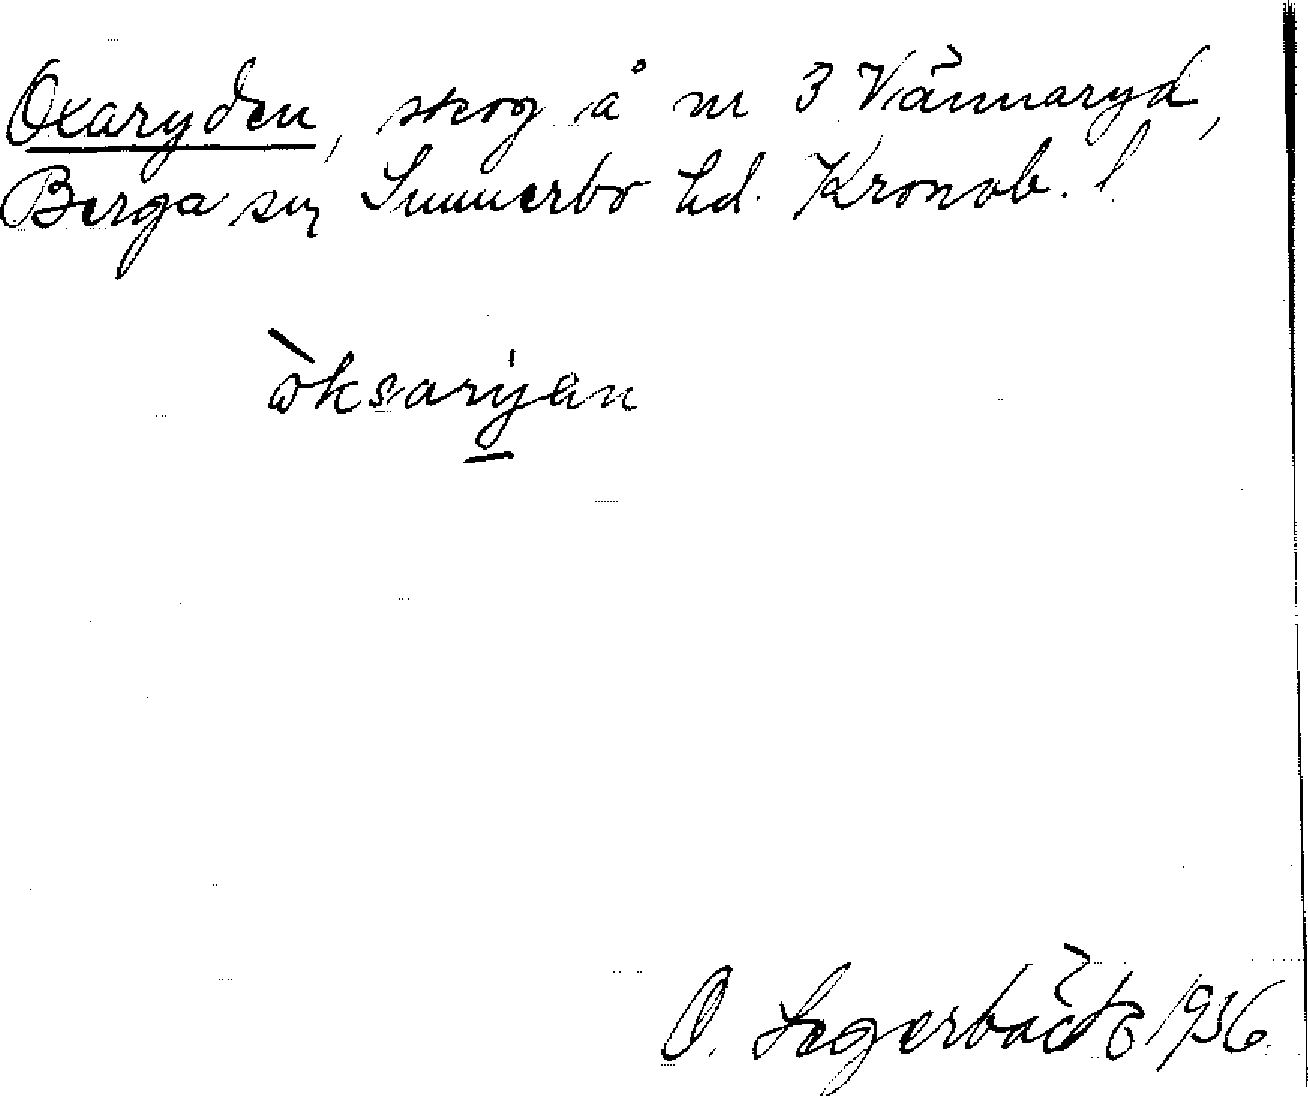 Oxaryden, skog å nr 3 Vännaryd,
Berga sn, Sunnerbo hd. Kronob. l.
òksarýan
O. Segerbäck 1956